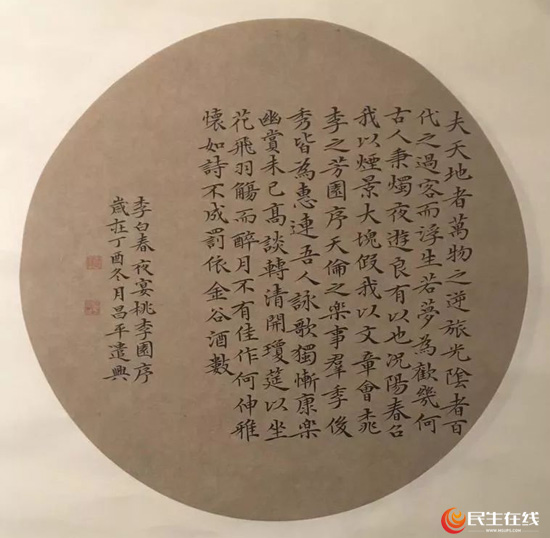 夫天地者萬物之逆旅光陰者百
代之過客而浮生若夢為歡幾何
古人秉燭夜遊良有以也況陽春召
我以煙景大塊假我以文章會桃
李之芳園序天倫之楽事羣季俊
秀皆為惠連吾人詠歌獨慚康楽
幽賞未已高談轉清開瓊筵以坐
花飛羽觴而醉月不有佳作何伸雅
懷如詩不成罰依金谷酒數
李白春夜宴桃李園序
歲在丁酉冬月昌平遣興
民生在线